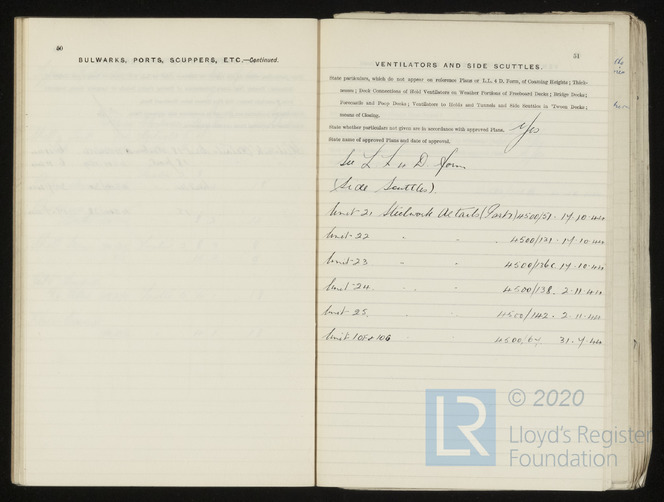 50
BULWARKS, PORTS, SCUPPERS, ETC.—Continued.
51
VENTILATORS AND SIDE SCUTTLES.
State particulars, which do not appear on reference Plans or L.L. & D. Form, of Coaming Heights; Thick-
nesses; Deck Connections of Hold Ventilators on Weather Portions of Freeboard Decks; Bridge Decks;
Forecastle and Poop Decks; Ventilators to Holds and Tunnels and Side Scuttles in 'Tween Decks;
means of Closing.
State whether particulars not given are in accordance with approved Plans. Yes
State name of approved Plans and date of approval.
See L L & D. form
(Side Scuttles).
Unit-21 Steelwork details (Part 2) 4500/51 . 17.10.44
Unit-22 " " 4500/131 . 17.10.44
Unit-23 " " 4500/136c 17.10.44
Unit-24 " " 4500/138. 2.11.44
Unit-25. " " 4500/142. 2.11.44
Unit 105 & 106 " " 4500/67 31.7.44
© 2020
LR
Lloyd's Register
Foundation